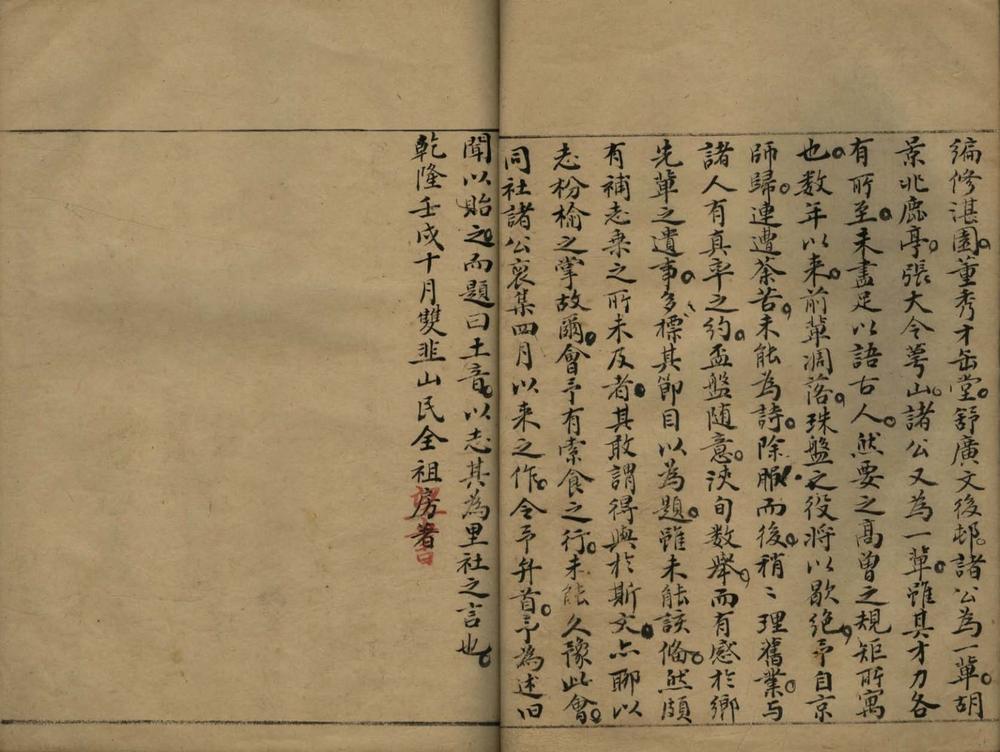 編修湛園董秀才缶堂舒廣文後邨諸公為一輩胡
京兆鹿亭張大令萼山諸公又為一輩雖其才力各
有所至未盡足以語古人然要之高曾之規矩所寓
也数年以来前輩凋落珠盤之役将以歇絶予自京
師歸連遭荼苦未能為詩除服而後稍〻理舊業与
諸人有真率之約盃盤随意浹旬数舉而有感於鄉
先輩之遺事多標其節目以為題雖未能該備然頗
有補志乗之所未及者其敢謂得與於斯文亦聊以
志枌榆之掌故爾會予有索食之行未能久豫此會
同社諸公裒集四月以来之作令予弁首予為述旧
聞以貽之而題曰土音以志其為里社之言也
乾隆壬戌十月雙韭山民全祖房著
望